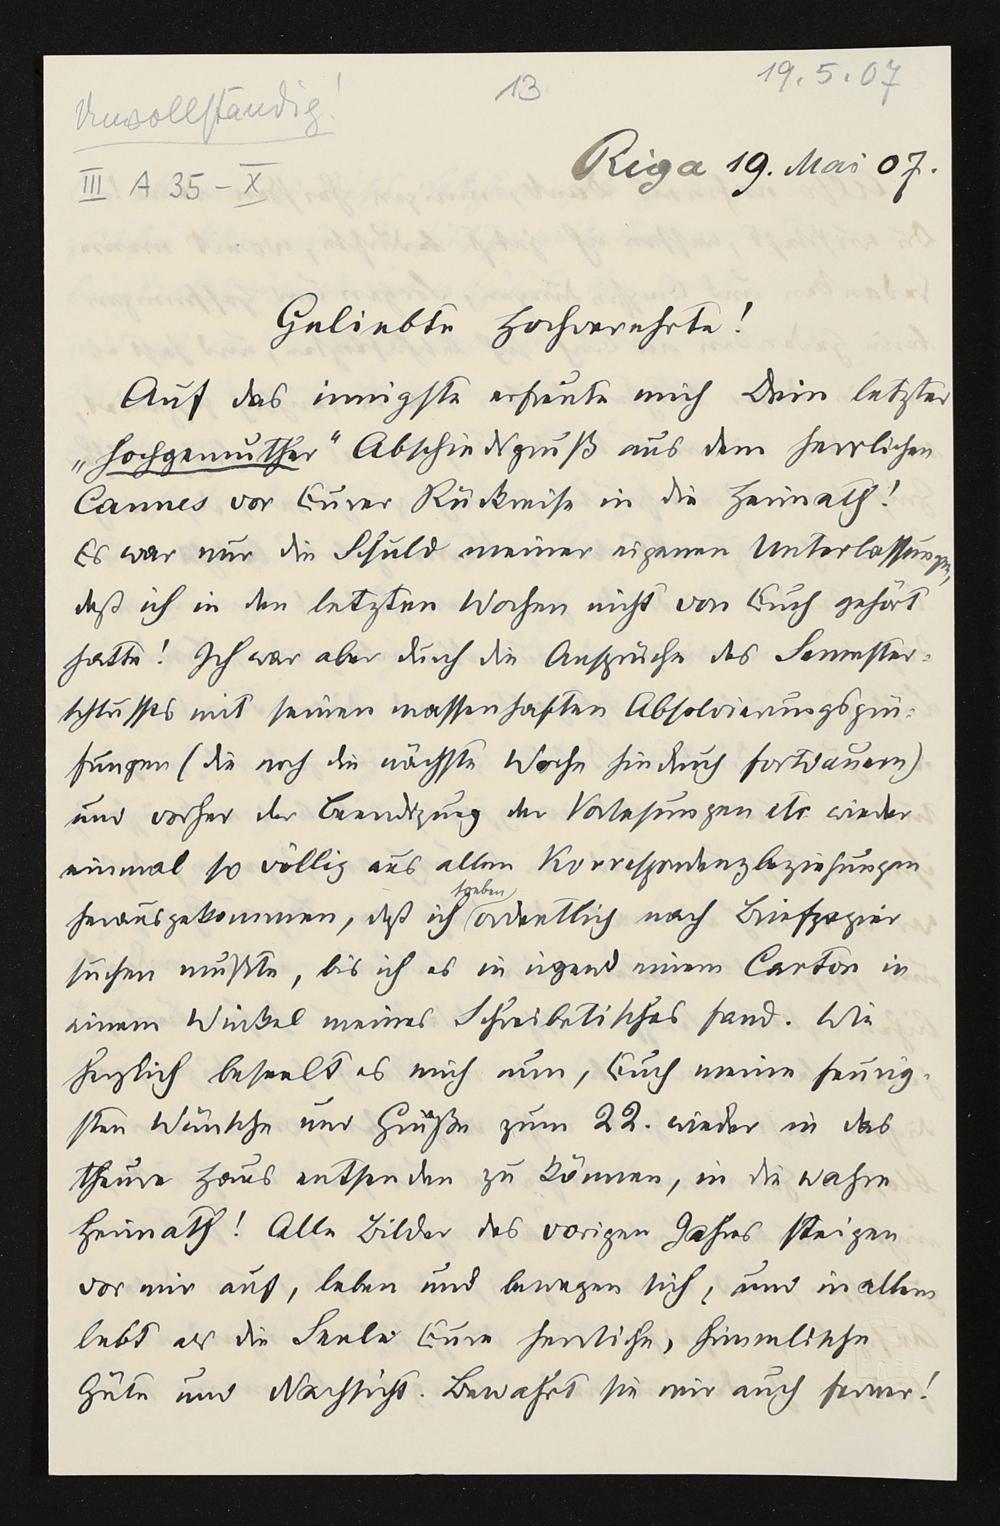 Unvollständig!
13
19.5.07
III A 35 – X
Riga 19. Mai 07.
Geliebte Hochverehrte!
Auf das innigste erfreute mich Dein letzter
„hochgemuther" Abschiedsgruß aus dem herrlichen
Cannes vor Eurer Rückreise in die Heimath!
Es war nur die Schuld meiner eigenen Unterlassungen,
daß ich in den letzten Wochen nicht von Euch gehört
hatte! Ich war aber durch die Ansprüche des Semester-
schlusses mit seinen massenhaften Absolvierungsprü-
fungen (die noch die nächste Woche hindurch fortdauern)
und vorher der Beendigung der Vorlesungen etc wieder
einmal so völlig aus allen Korrespondenzbeziehungen
herausgekommen, daß ich soeben ordentlich nach Briefpapier
suchen mußte, bis ich es in irgend einem Carton in
einem Winkel meines Schreibtisches fand. Wie
herzlich beseelt es mich nun, Euch meine innig-
sten Wünsche und Grüße zum 22. wieder in das
theure Haus entsenden zu können, in die wahre
Heimath! Alle Bilder des vorigen Jahres steigen
vor mir auf, leben und bewegen sich, und in allem
lebt als die Seele Eure herrliche, himmlische
Güte und Nachsicht. Bewahrt sie mir auch ferner!